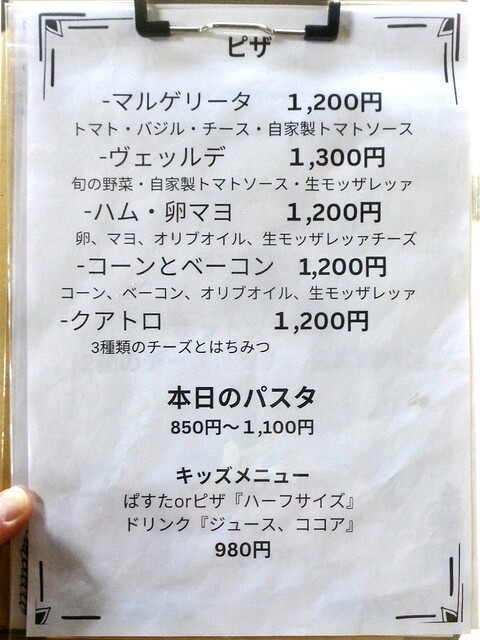 ピザ
-マルゲリータ 1,200円
トマト・バジル・チース・自家製トマトソース
-ヴェッルデ 1,300円
旬の野菜・自家製トマトソース・生モッザレッァ
-ハム・卵マヨ 1,200円
卵、マヨ、オリブオイル、生モッザレッァチーズ
-コーンとベーコン 1,200円
コーン、ベーコン、オリブオイル、生モッザレッァ
-クアトロ 1,200円
3種類のチーズとはちみつ
本日のパスタ
850円〜1,100円
キッズメニュー
ぱすたorピザ『ハーフサイズ』
ドリンク『ジュース、ココア』
980円